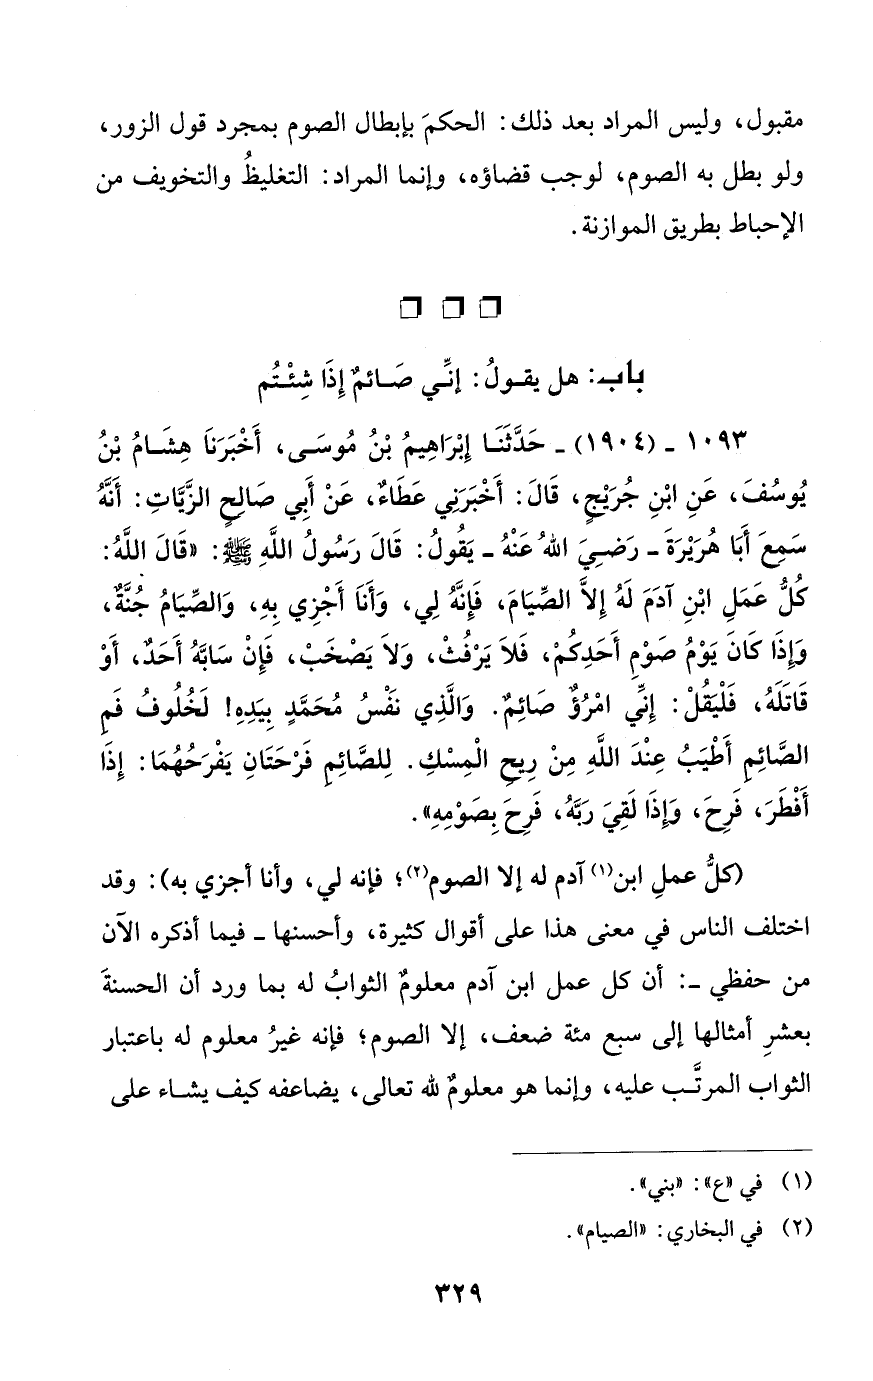 مقبول، وليس المراد بعد ذلك: الحكمَ بإبطال الصوم بمجرد قول الزور،
ولو بطل به الصوم، لوجب قضاؤه، وإنما المراد: التغليظُ والتخويف من
الإحباط بطريق الموازنة.
باب: هل يقولُ: إنِّي صَائمٌ إِذَا شِئْتُم
١٠٩٣ ـ (١٩٠٤) ـ حَدَّثَنَا إِبْرَاهِيمُ بْنُ مُوسَى، أَخْبَرَنَا هِشَامُ بْنُ
يُوسُفَ، عَنِ ابْنِ جُرَيْجٍ، قَالَ: أَخْبَرَنِي عَطَاءٌ، عَنْ أَبِي صَالِحٍ الزَّيَّاتِ: أَنَّهُ
سَمِعَ أَبَا هُرَيْرَةَ ـ رَضِيَ اللهُ عَنْهُ ـ يَقُولُ: قَالَ رَسُولُ اللَّهِ ﷺ: «قَالَ اللَّهُ:
كُلُّ عَمَلِ ابْنِ آدَمَ لَهُ إِلاَّ الصِّيَامَ، فَإِنَّهُ لِي، وَأَنَا أَجْزِي بِهِ، وَالصِّيَامُ جُنَّةٌ،
وَإِذَا كَانَ يَوْمُ صَوْمِ أَحَدِكُمْ، فَلاَ يَرْفُثْ، وَلاَ يَصْخَبْ، فَإِنْ سَابَّهُ أَحَدٌ، أَوْ
قَاتَلَهُ، فَلْيَقُلْ: إِنِّي امْرُؤٌ صَائِمٌ. وَالَّذِي نَفْسُ مُحَمَّدٍ بِيَدِهِ! لَخُلُوفُ فَمِ
الصَّائِمِ أَطْيَبُ عِنْدَ اللَّهِ مِنْ رِيحِ الْمِسْكِ. لِلصَّائِمِ فَرْحَتَانِ يَفْرَحُهُمَا: إِذَا
أَفْطَرَ، فَرِحَ، وَإِذَا لَقِيَ رَبَّهُ، فَرِحَ بِصَوْمِهِ».
(كلُّ عملِ ابن(١) آدم له إلا الصوم(٢)؛ فإنه لي، وأنا أجزي به): وقد
اختلف الناس في معنى هذا على أقوال كثيرة، وأحسنها ـ فيما أذكره الآن
من حفظي ـ: أن كل عمل ابن آدم معلومٌ الثوابُ له بما ورد أن الحسنةَ
بعشرِ أمثالها إلى سبع مئة ضعف، إلا الصوم؛ فإنه غيرُ معلوم له باعتبار
الثواب المرتَّب عليه، وإنما هو معلومٌ لله تعالى، يضاعفه كيف يشاء على
(١) في «ع»: «بني».
(٢) في البخاري: «الصيام».
٣٢٩